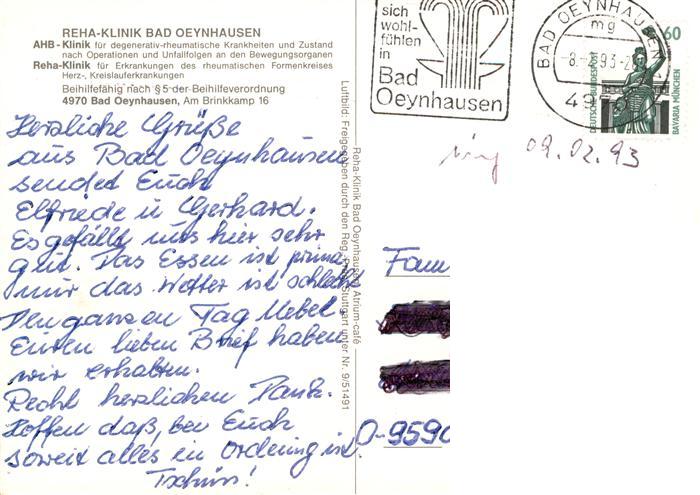 REHA-KLINIK BAD OEYNHAUSEN
AHB-Klinik für degenerativ-rheumatische Krankheiten und Zustand
nach Operationen und Unfallfolgen an den Bewegungsorganen
Reha-Klinik für Erkrankungen des rheumatischen Formenkreises
Herz-, Kreislauferkrankungen
Beihilfefähig nach § 5 der Beihilfeverordnung
4970 Bad Oeynhausen, Am Brinkkamp 16
Herzliche Grüße
aus Bad Oeynhausen
sended Euch
Elfriede u Gerhard.
Es gefällt uns hier sehr
gut. Das Essen ist prima
nur das Wetter ist schlecht
Den ganzen Tag Nebel.
Euren lieben Brief haben
wir erhalten.
Recht herzlichen Dank.
Hoffen daß, bei Euch
soweit alles in Ordnung ist.
Tschüss!
Reha-Klinik Bad Oeynhausen, Atrium-café
Luftbild: Freigegeben durch den Reg.-Präs. Stuttgart unter Nr. 9/51491
sich
wohl-
fühlen
in
Bad
Oeynhausen
BAD OEYNHAUSEN 1
mg
-8.-2.93-2
4970
60
DEUTSCHE BUNDESPOST
BAVARIA MÜNCHEN
09.02.93
Fam
O-9590